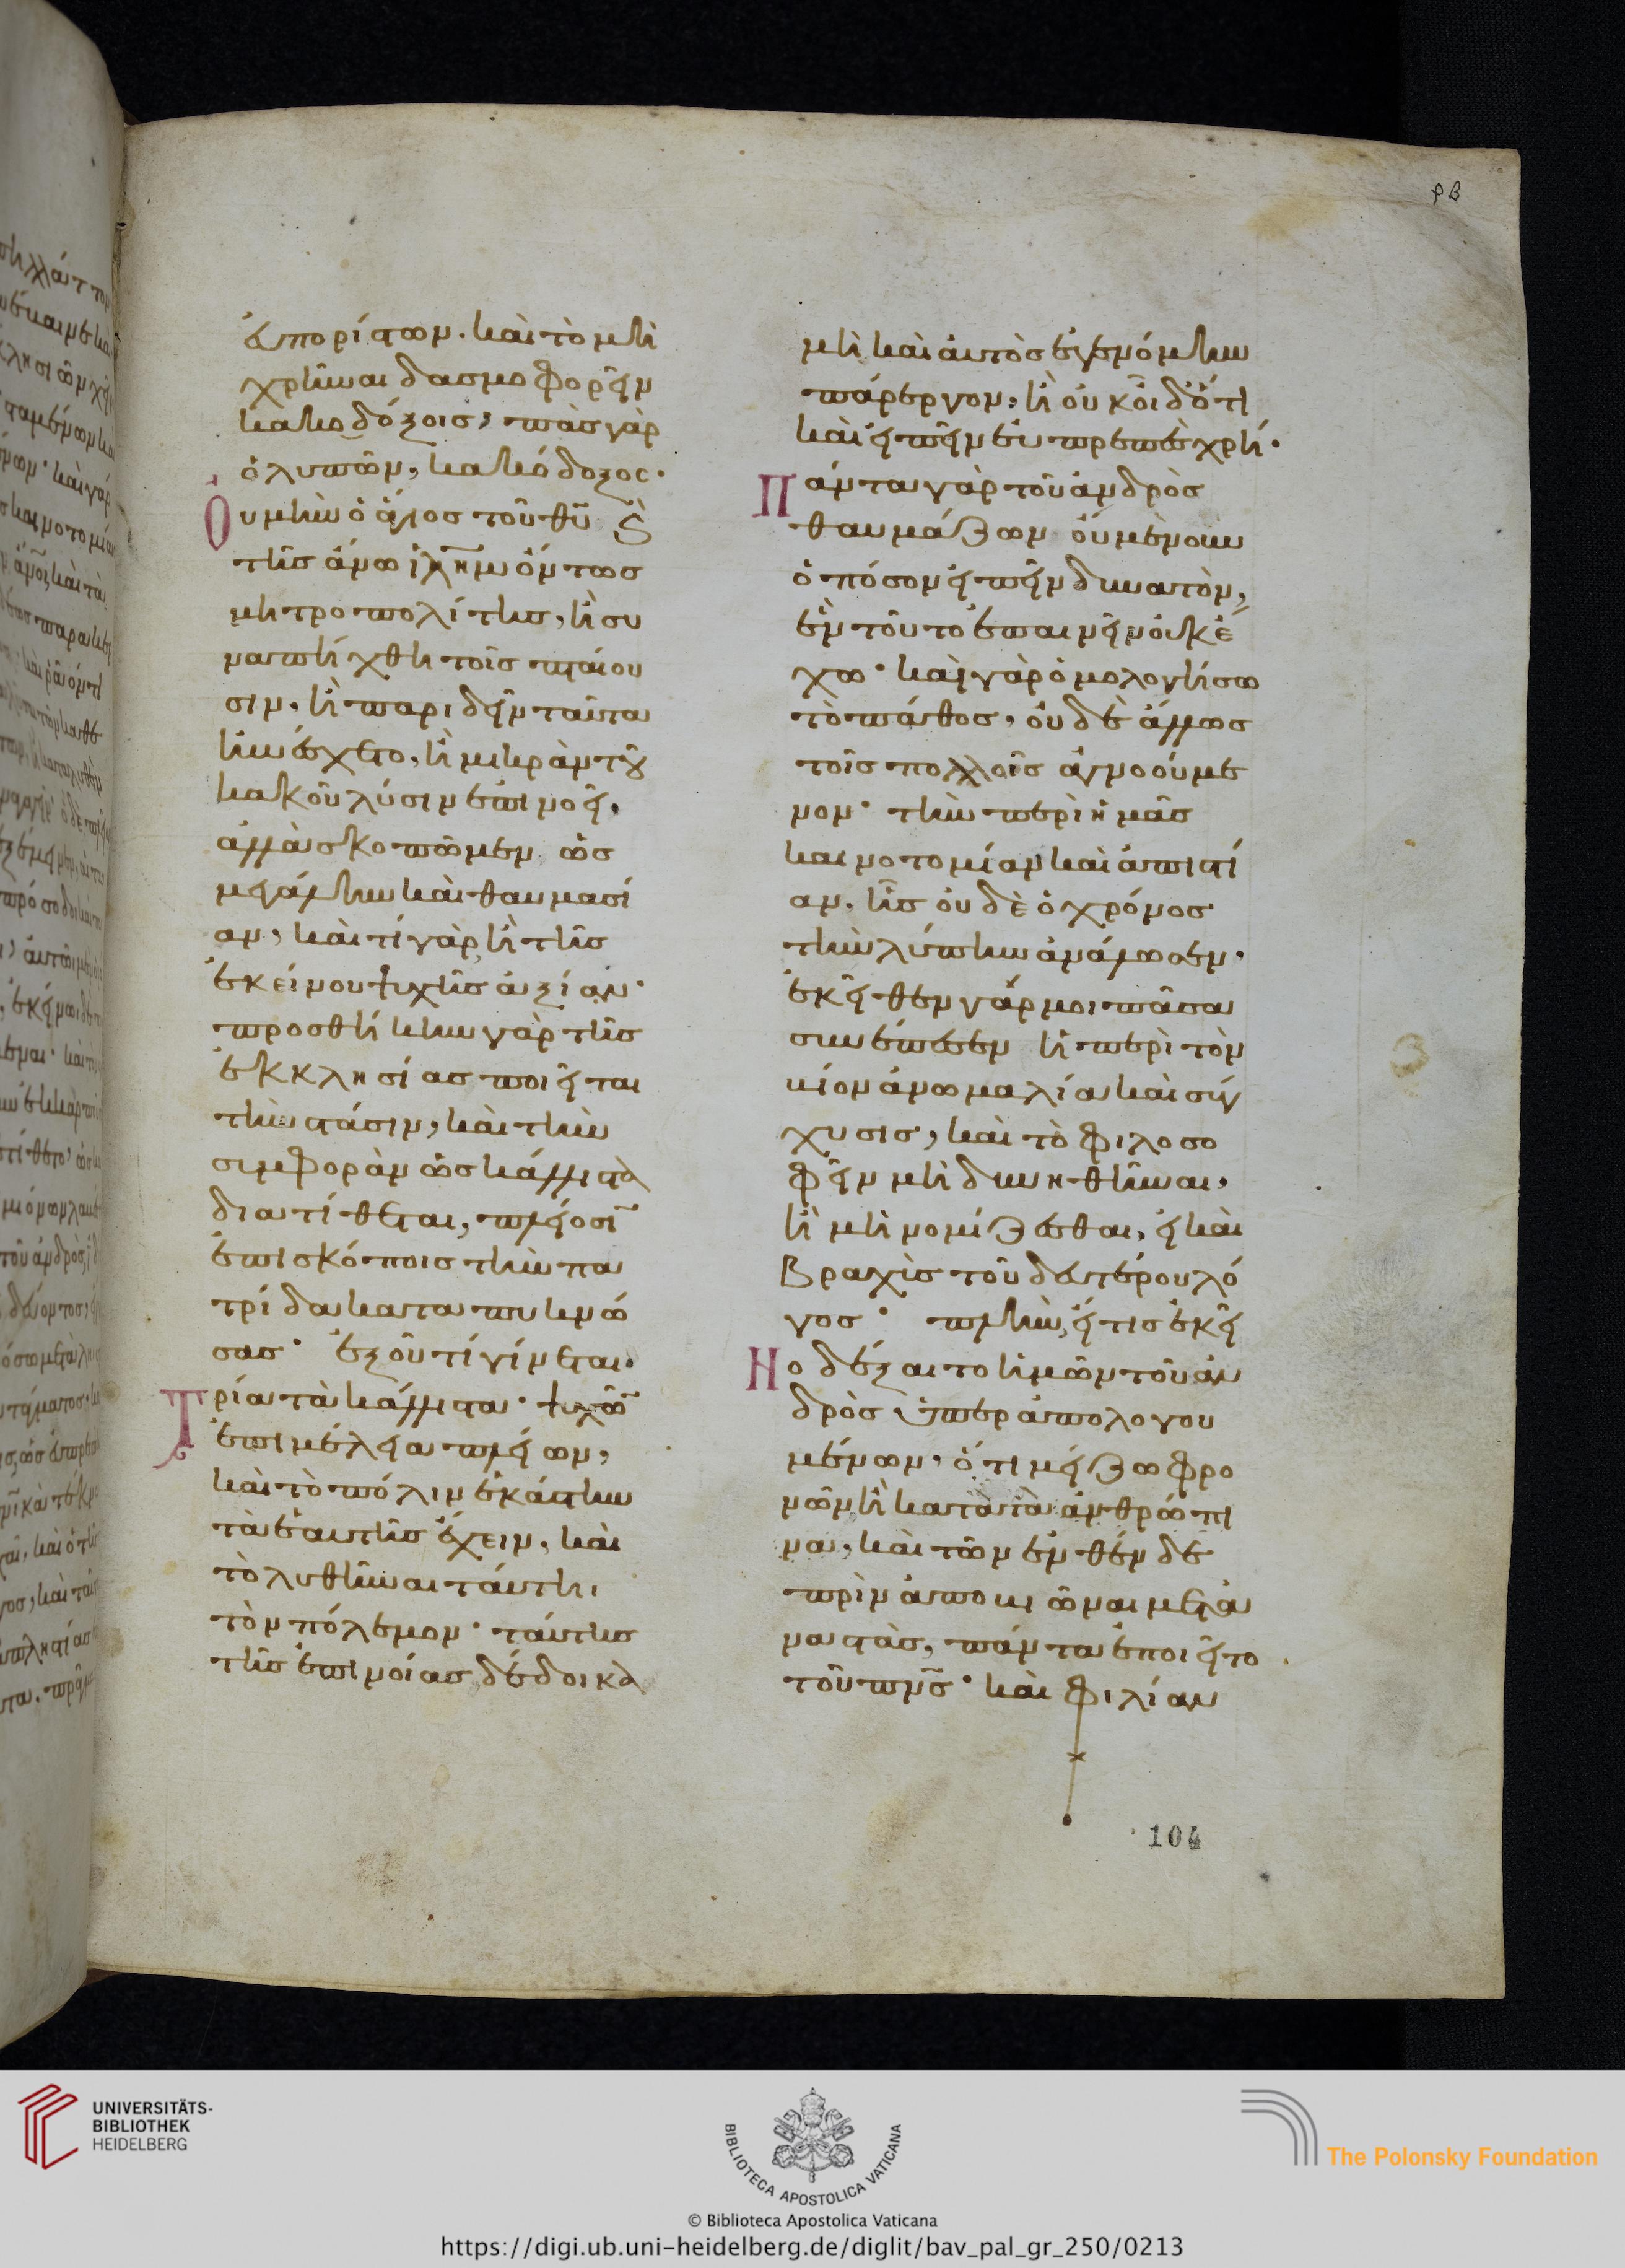 εὐπορίστων. καὶ τὸ μὴ
χρῆναι δασμοφορεῖν
κακοδόξοις, πᾶς γὰρ
ὁ λυπῶν, κακόδοξος.
Οὐ μὴν ὁ ἅγιος τοῦ θῦ ϗ
τῆς ἄνω ἰλ̅η̅μ̅ ὄντως
μητροπολίτης, ἢ συ
ναπήχθη τοῖς πταίου
σιν, ἢ παριδεῖν ταῦτα
ἠνέσχετο, ἢ μικρὰν τοῦ
κακοῦ λύσιν ἐπινοεῖ,
ἀλλὰ σκοπῶμεν ὡς
μεγάλην καὶ θαυμασί
αν, καὶ τί γὰρ ἢ τῆς
ἐκείνου ψυχῆς ἀξίαν·
προσθήκην γὰρ τῆς
ἐκκλησίας ποιεῖται
τὴν στάσιν, καὶ τὴν
συμφορὰν ὡς κάλλιστα
διατίθεται, πλείοσῑ
ἐπισκόποις τὴν πα
τρίδα καταπυκνώ
σας· ἐξ οὗ τί γίνεται.
Τρία τὰ κάλλιστα· ψυχῶ̅
ἐπιμέλεια πλείων,
καὶ τὸ πόλιν ἑκάστην
τὰ ἑαυτῆς ἔχειν, καὶ
τὸ λυθῆναι ταύτηι
τὸν πόλεμον· ταύτης
τῆς ἐπινοίας δέδοικα
ρβ
μὴ καὶ αὐτὸς ἐγενόμην
πάρεργον, ἢ οὐκ οἶδ' ὅτι
καὶ εἰπεῖν εὐπρεπὲς χρή.
Πάντα γὰρ τοῦ ἀνδρὸς
θαυμάζων οὐ μὲν οὖν
ὁπόσον εἰπεῖν δυνατὸν,
ἓν τοῦτο ἐπαινεῖν οὐκ ἔ
χω· καὶ γὰρ ὁμολογήσω
τὸ πάθος, οὐδὲ ἄλλως
τοῖς πολλοῖς ἀγνοούμε
νον· τὴν περὶ ἡμᾶς
καινοτομίαν καὶ ἀπιστί
αν, ἧς οὐδὲ ὁ χρόνος
τὴν λύπην ἀνάλωσεν·
ἐκεῖθεν γάρ μοι πᾶσα
συνέπεσεν ἡ περὶ τὸν
βίον ἀνωμαλία καὶ σύγ
χυσις, καὶ τὸ φιλοσο
φεῖν μὴ δυνηθῆναι,
ἢ μὴ νομίζεσθαι, εἰ καὶ
βραχὺς τοῦ δευτέρου λό
γος· πλὴν εἴ τις ἐκεῖ
Νο δέξαιτο ἡμῶν τοῦ ἀν
δρὸς ὑπεραπολογου
μένων, ὅτι μείζω φρο
νῶν ἢ κατὰ τὰ ἀνθρώπι
να, καὶ τῶν ἐνθένδε
πρὶν ἀποβιῶναι μετα
ναστὰς, πάντα ἐποιεῖτο
τοῦ πνς̅· καὶ φιλίαν
104
UNIVERSITÄTS-
BIBLIOTHEK
HEIDELBERG
BIBLIOTECA APOSTOLICA VATICANA
The Polonsky Foundation
© Biblioteca Apostolica Vaticana
https://digi.ub.uni-heidelberg.de/diglit/bav_pal_gr_250/0213